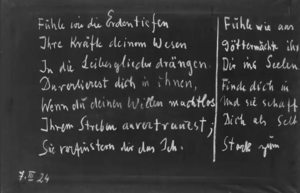 Fühle wie die Erdentiefen
Ihre Kräfte deinem Wesen
In die Leibesglieder drängen.
Du verlierest dich in ihnen,
Wenn du deinen Willen machtlos
Ihrem Streben anvertrauest;
Sie verfinstern dir das Ich.
Fühle wie aus
Göttermächte ihr
Dir ins Seelen
Finde dich in
Und sie schafft
Dich als Selb
Stark zum
7. III 24